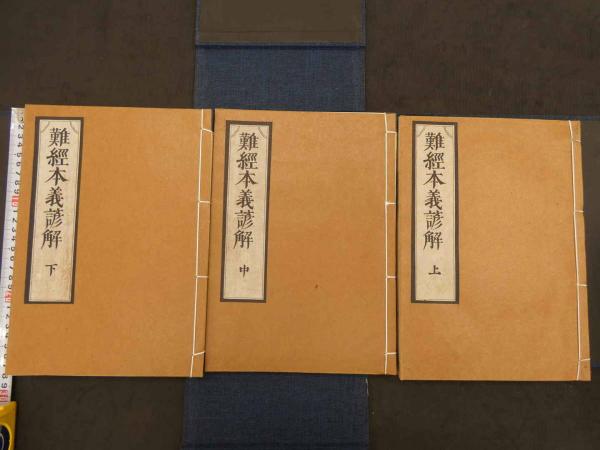 難經本義諺解 上
難經本義諺解 中
難經本義諺解 下